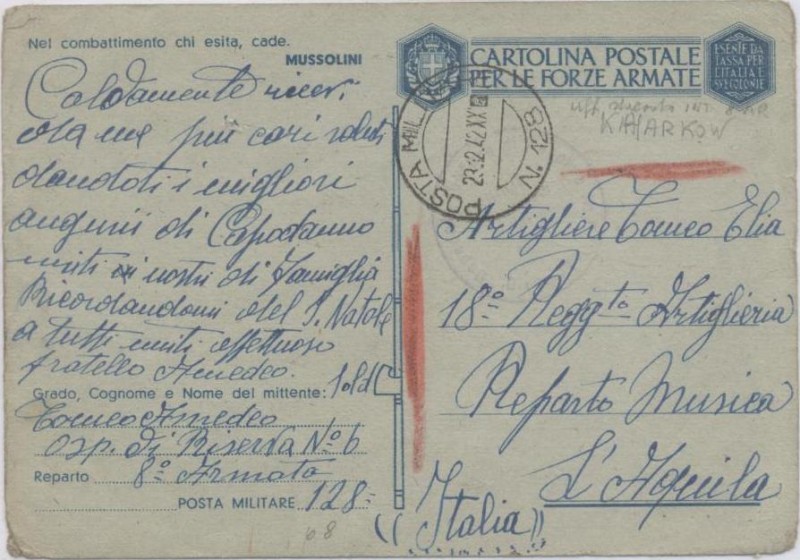 Nel combattimento chi esita, cade.
MUSSOLINI
CARTOLINA POSTALE
PER LE FORZE ARMATE
ESENTE DA
TASSA PER
L'ITALIA E
SUE COLONIE
POSTA MIL N. 128
23.12.42 XXI
KHARKOW
Caldamente ricev.
da me più cari saluti
dandoti i migliori
auguri di Capodanno
uniti ai nostri di famiglia
Ricordandomi del S. Natale
a tutti uniti affettuoso
fratello Amedeo.
Grado, Cognome e Nome del mittente: Sold
Amedeo
Osp. di Riserva N° 6
Reparto 8° Armata
POSTA MILITARE 128
68
Artigliere Elia
18° Regg.to Artiglieria
Reparto Musica
L'Aquila
((Italia))